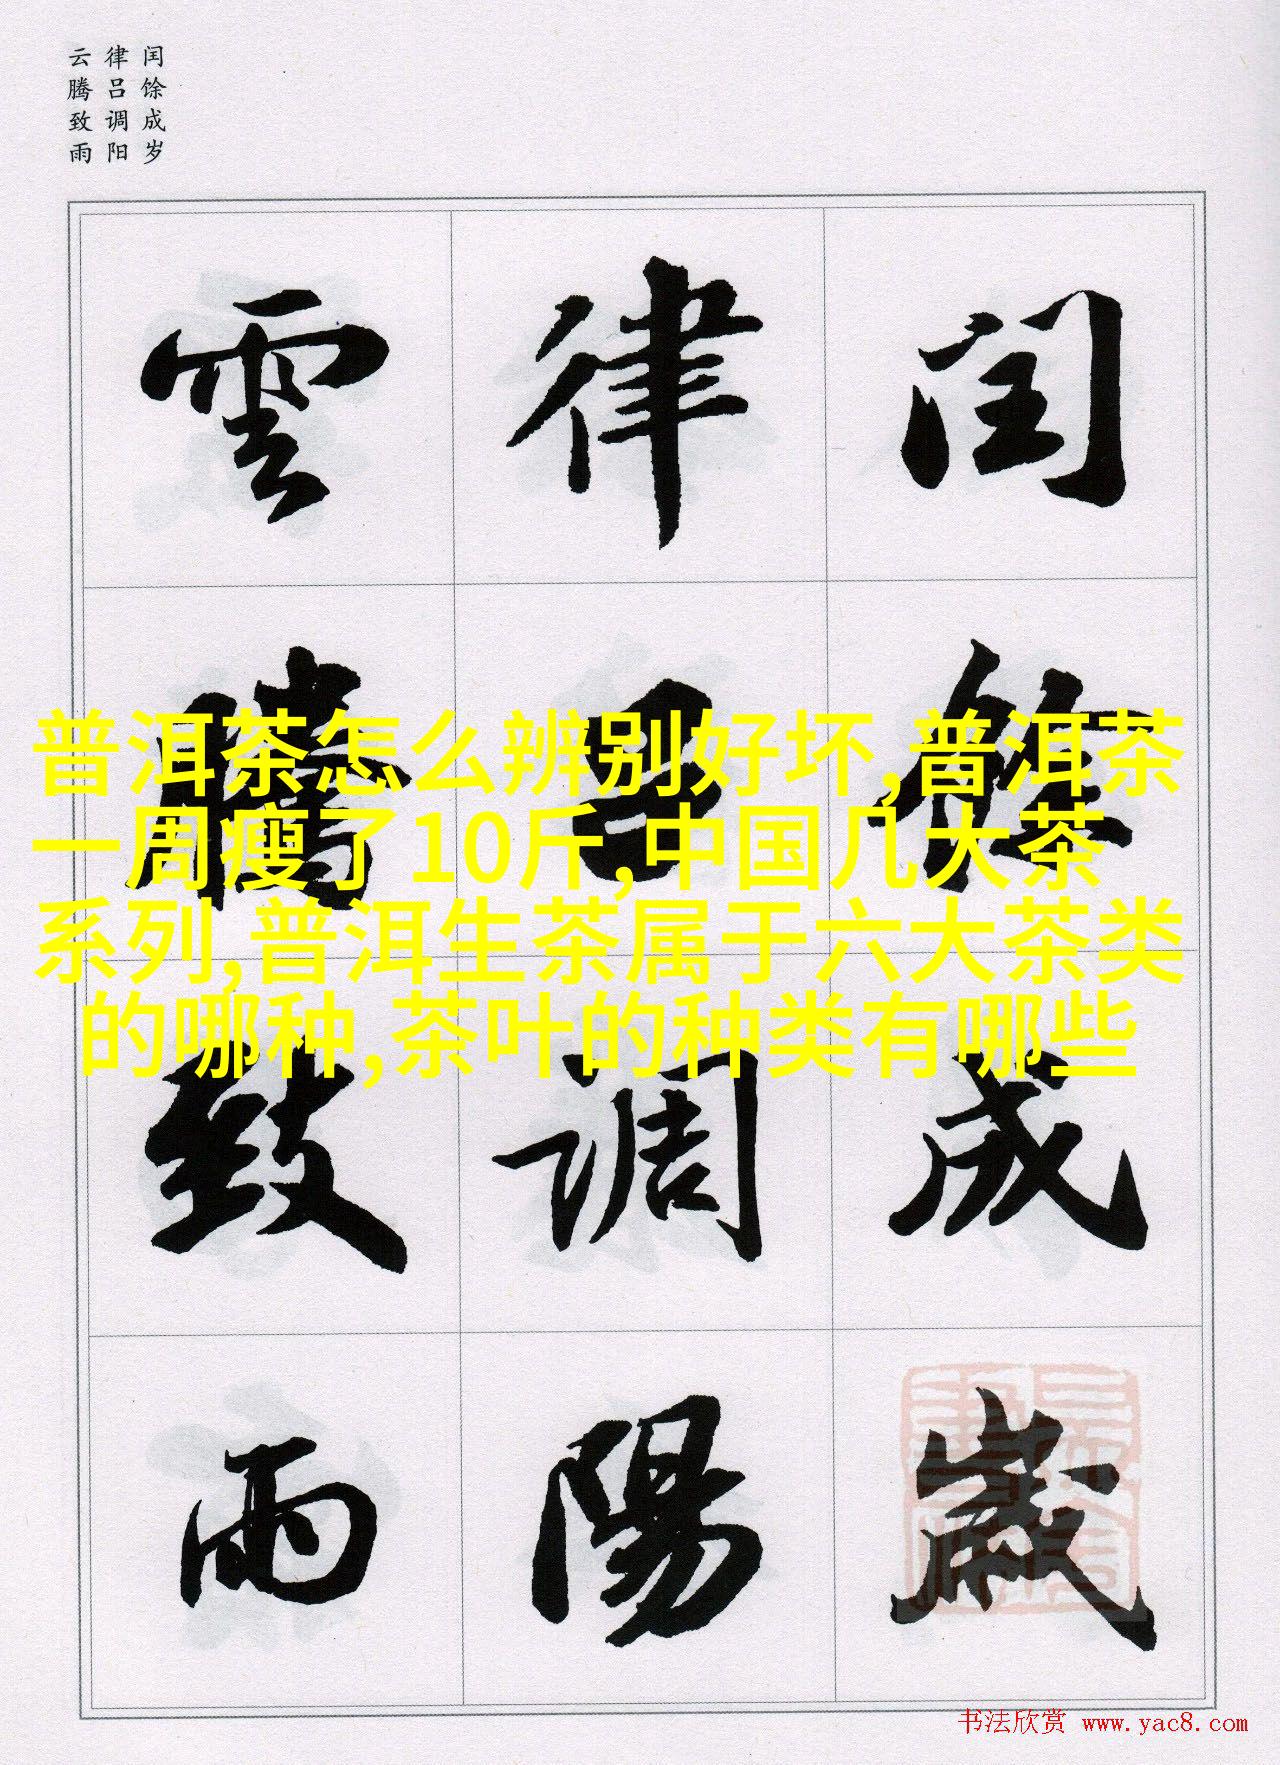 闰馀成岁
律吕调阳
云腾致雨
閏餘成歲
律呂調陽
雲騰致雨
普洱茶怎么辨别好坏,普洱茶
一周瘦了10斤,中国几大茶
系列,普洱生茶属于六大茶类
的哪种,茶叶的种类有哪些
书法欣赏 www.yac8.com